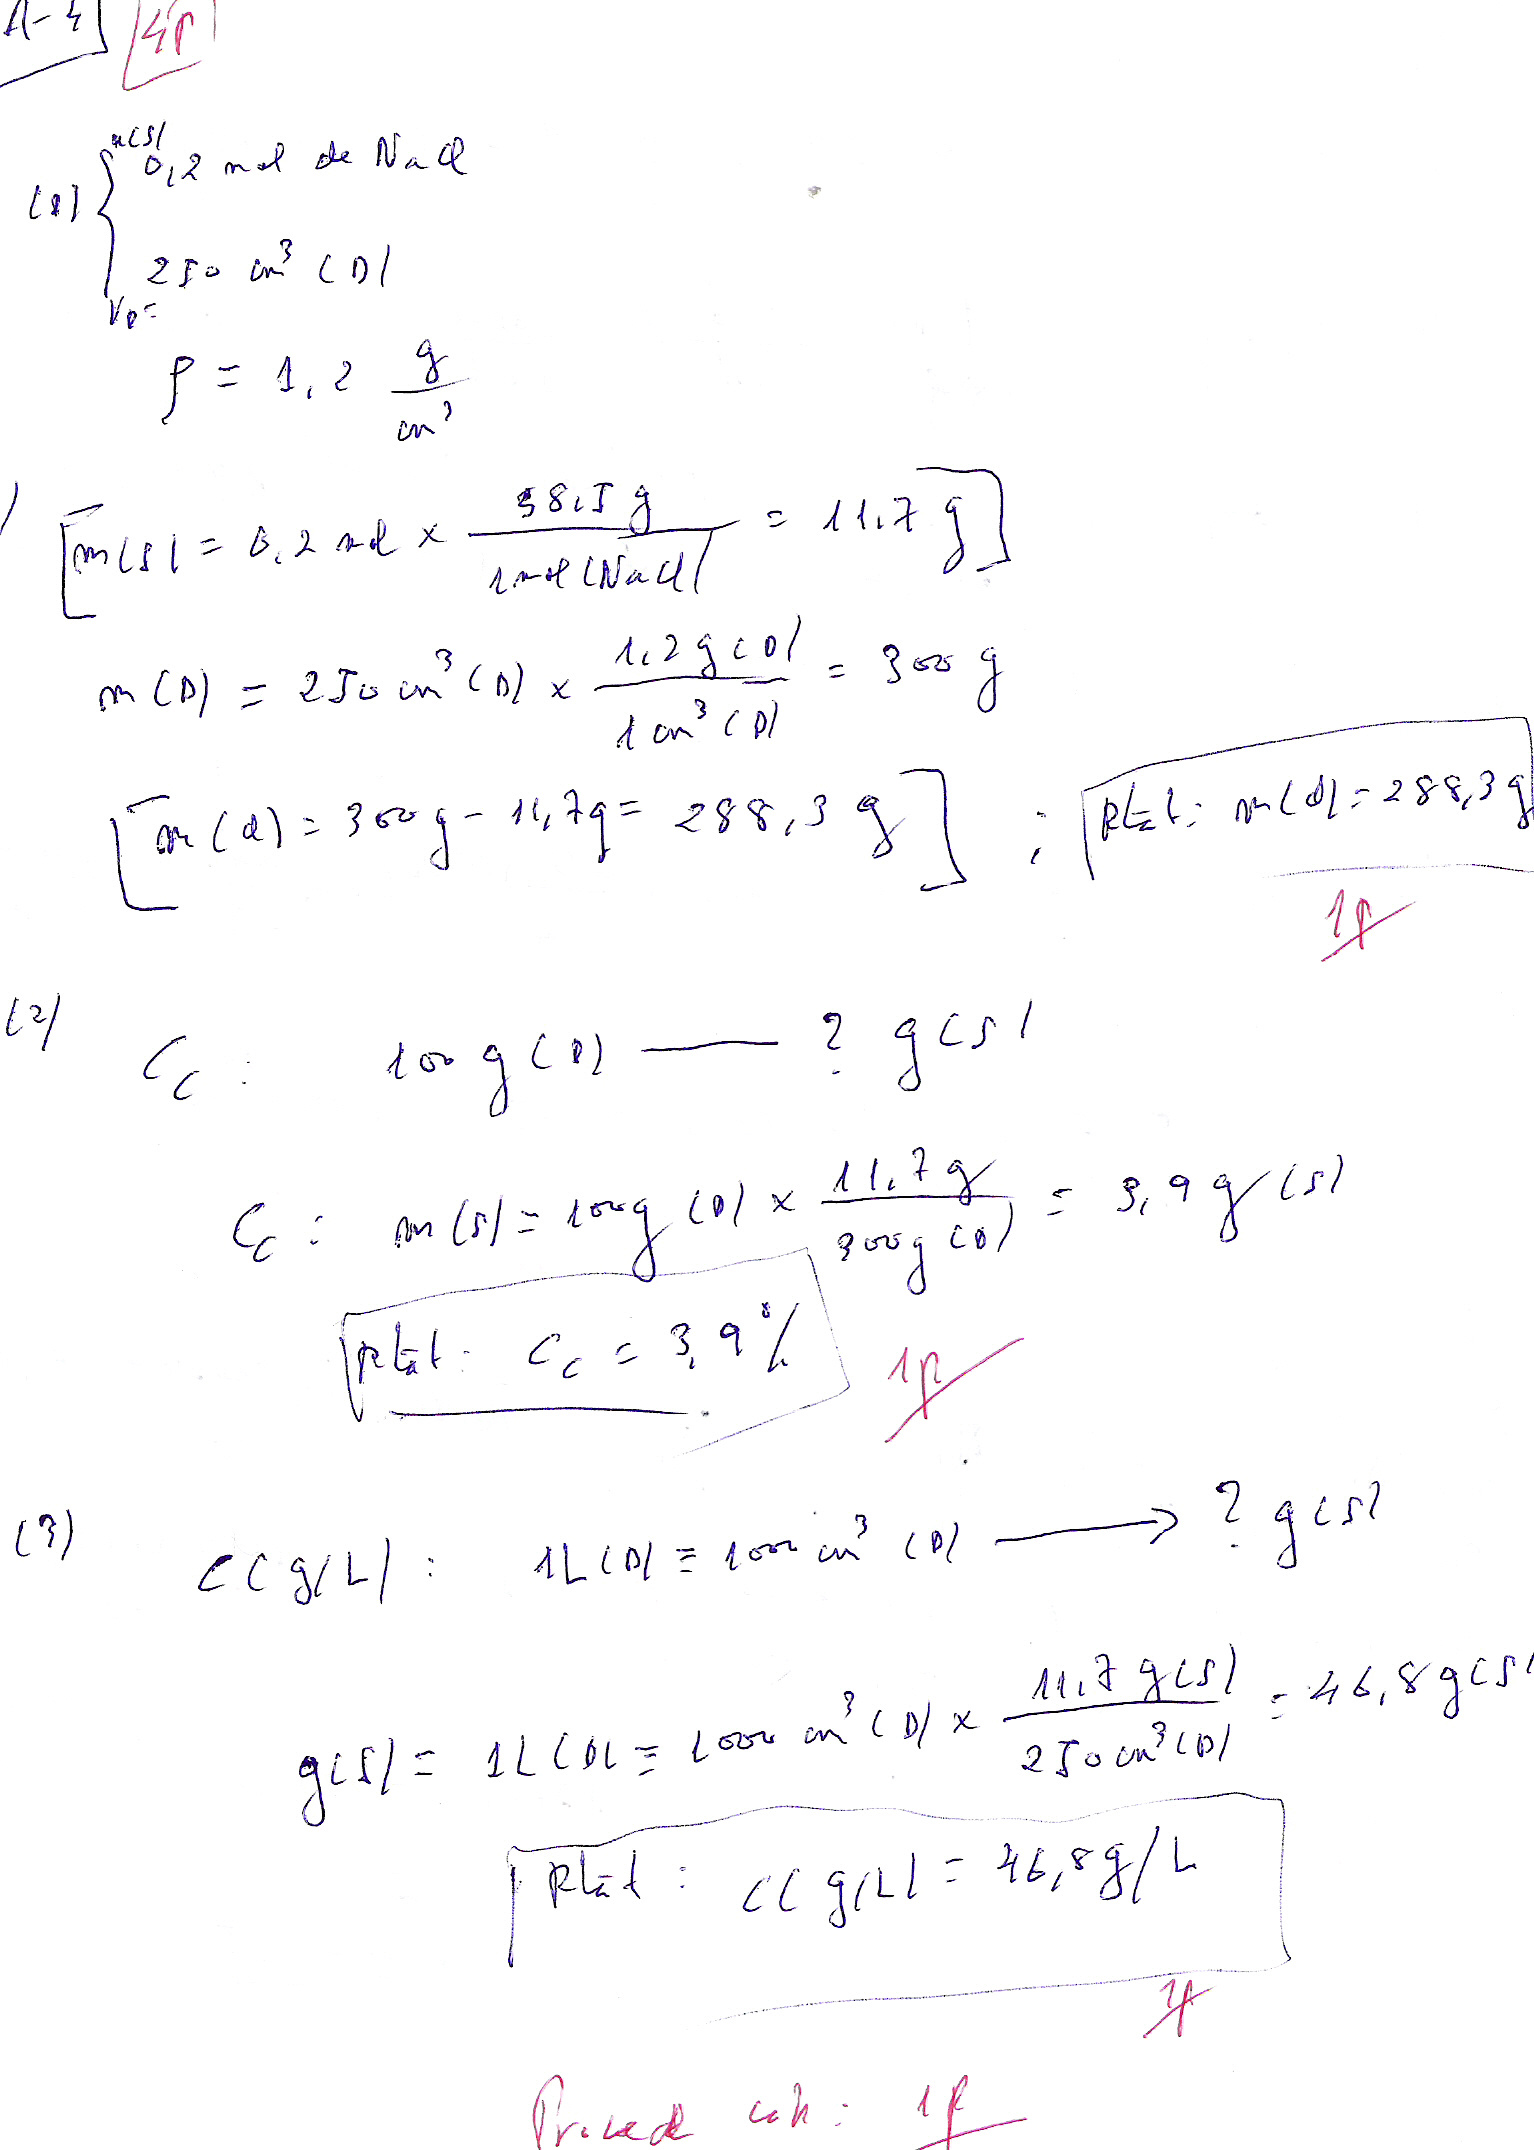 A-4] 4P
n(S)
(D) { 0,2 mol de NaCl
250 cm³ (D)
V_D =
ρ = 1,2 g/cm³
[m(S) = 0,2 mol × 58,5 g / 1 mol (NaCl) = 11,7 g]
m(D) = 250 cm³ (D) × 1,2 g (D) / 1 cm³ (D) = 300 g
[m(d) = 300 g - 11,7 g = 288,3 g] ; Rtát: m(d) = 288,3 g
1p
(2)
C_c : 100 g (D) — ? g (S)
C_c : m(S) = 100 g (D) × 11,7 g / 300 g (D) = 3,9 g (S)
Rtát: C_c = 3,9 %
1p
(3)
C(g/L) : 1L (D) ≡ 1000 cm³ (D) → ? g (S)
g(S) = 1L (D) ≡ 1000 cm³ (D) × 11,7 g (S) / 250 cm³ (D) = 46,8 g (S)
Rtát : C(g/L) = 46,8 g/L
1p
1p